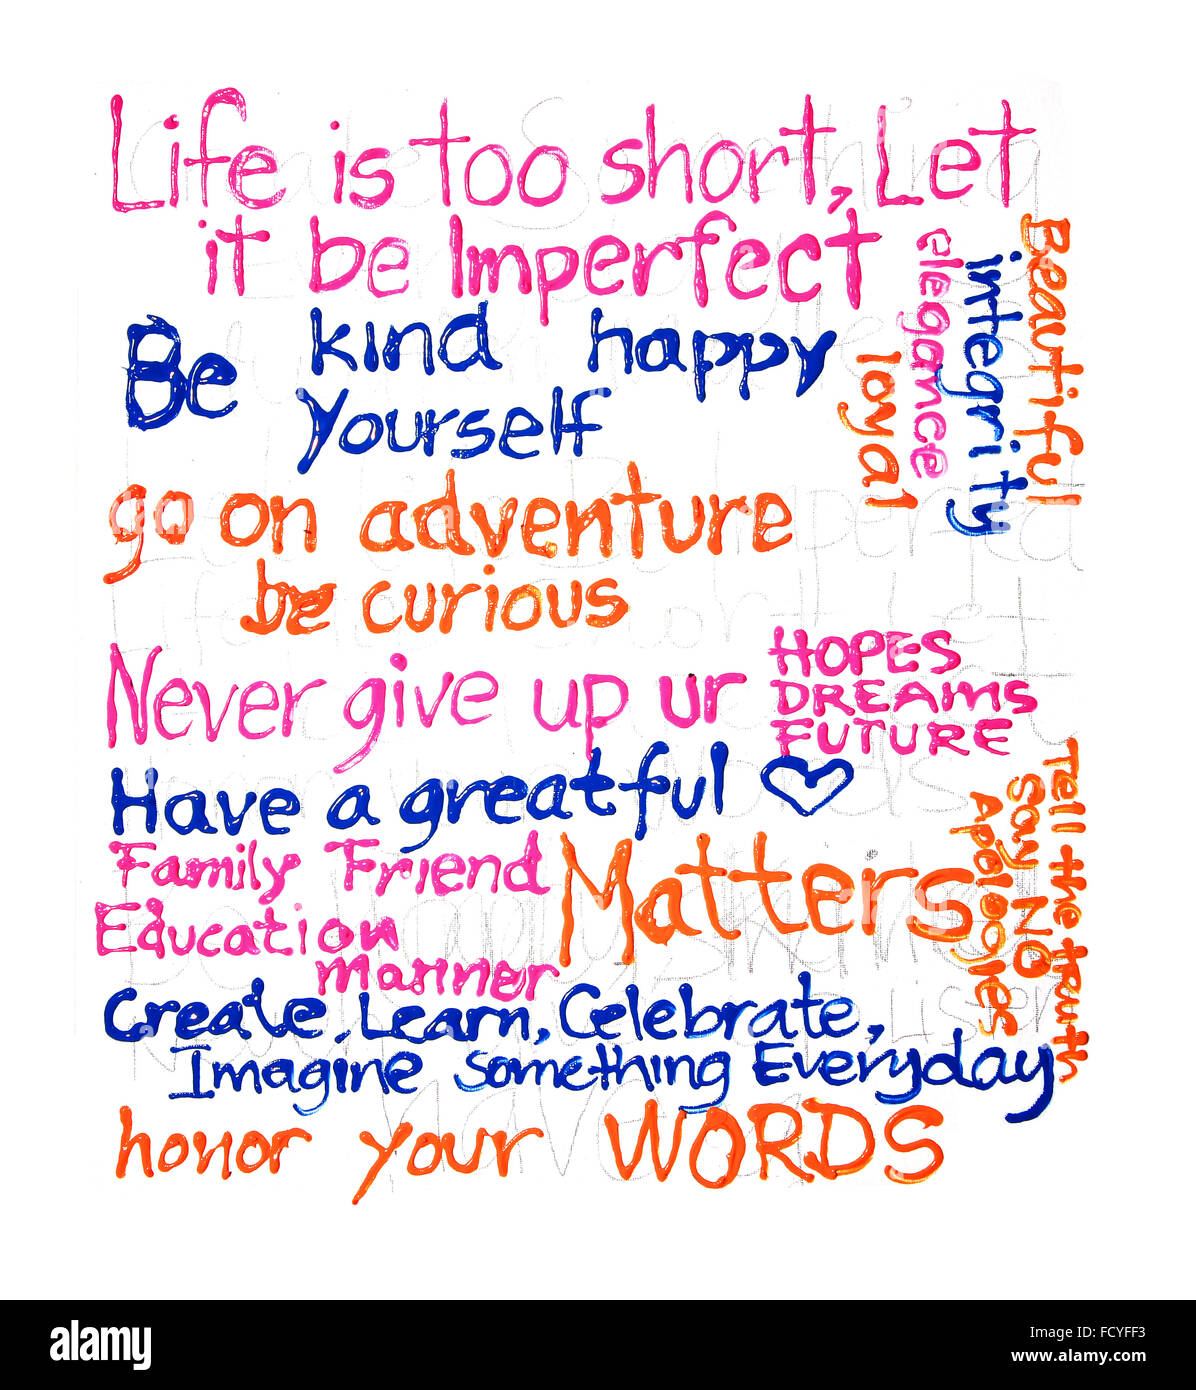 Life is too short, Let
it be Imperfect
Be kind happy
yourself
Beautiful
integrity
elegance
loyal
go on adventure
be curious
Never give up ur
HOPES
DREAMS
FUTURE
Have a greatful
Family Friend
Education
manner
Matters
Tell the truth
Say NO
Apologies
Create, Learn, Celebrate,
Imagine Something Everyday
honor your WORDS
alamy
Image ID: FCYFF3
www.alamy.com